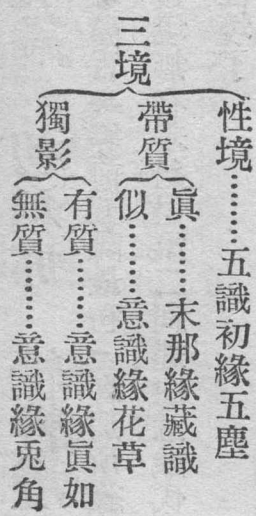 三境
性境………五識初緣五塵
帶質
眞………末那緣藏識
似………意識緣花草
獨影
有質………意識緣眞如
無質………意識緣兎角